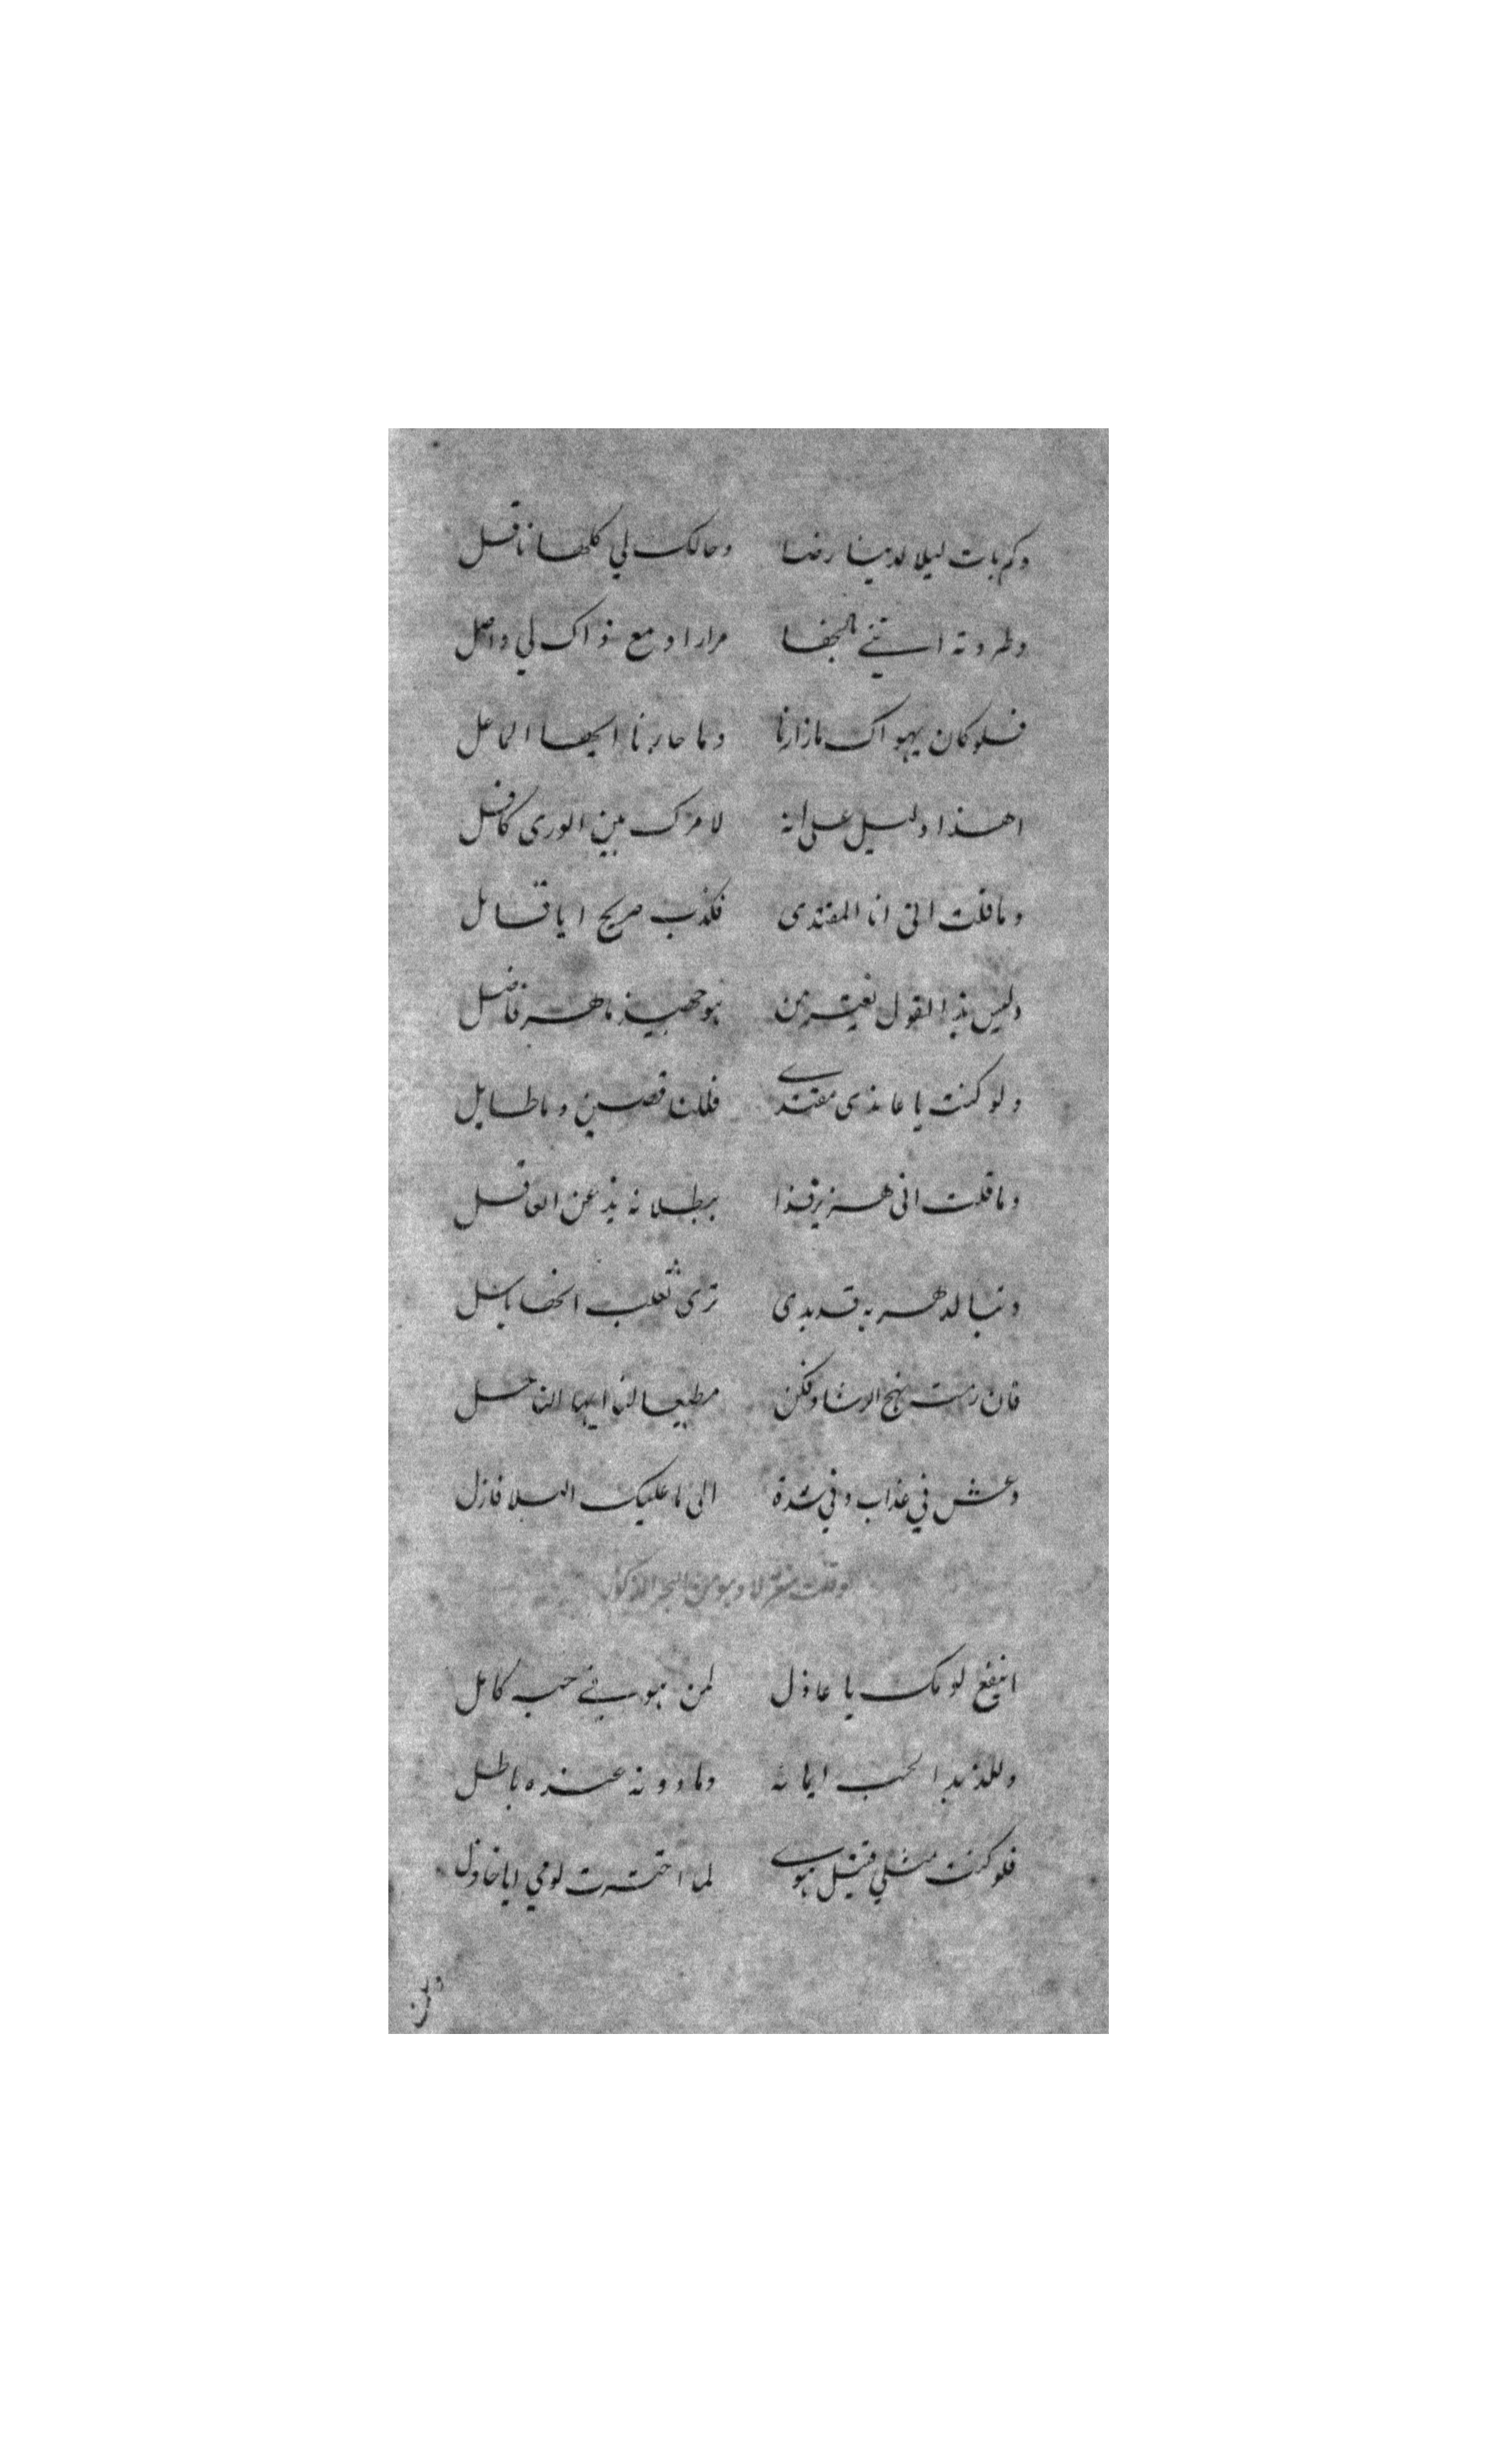 وكم بات ليلا لدينا رضا وحالك لي كلها ناقل
وطردته استي بالجفا مرارا ومع ذاك لي واصل
فلو كان يهواك ما زارنا وما جازنا ايها الماعل
اهذا دليل على انه لامرك بين الورى كافل
وما قلت اني انا المقتدى فكذب صريح ايا قائل
وليس بذا القول يغتر من هو جهبيذ ماهر فاضل
ولو كنت يا هاذى مقتدى فللناقصين وما طايل
وما قلت انى هزبر فذا ببطلانه يذعن العاقل
وتبا لدهر به قد بدى ترى ثعلب انها باسل
فان رمت نهج الرشاد فكن مطيعا لنا ايها الناحل
وعش في عذاب وفي شدة الى ما عليك البلا نازل
وقلت متغزلا وهو من البحر المذكور
اينفع لومك يا عاذل لمن هو في حب كامل
ولله هذا الحب ايمانه وما دونه عنده باطل
فلو كنت مثلي قتيل هوى لما اخترت لومي ايا خاذل
ولن